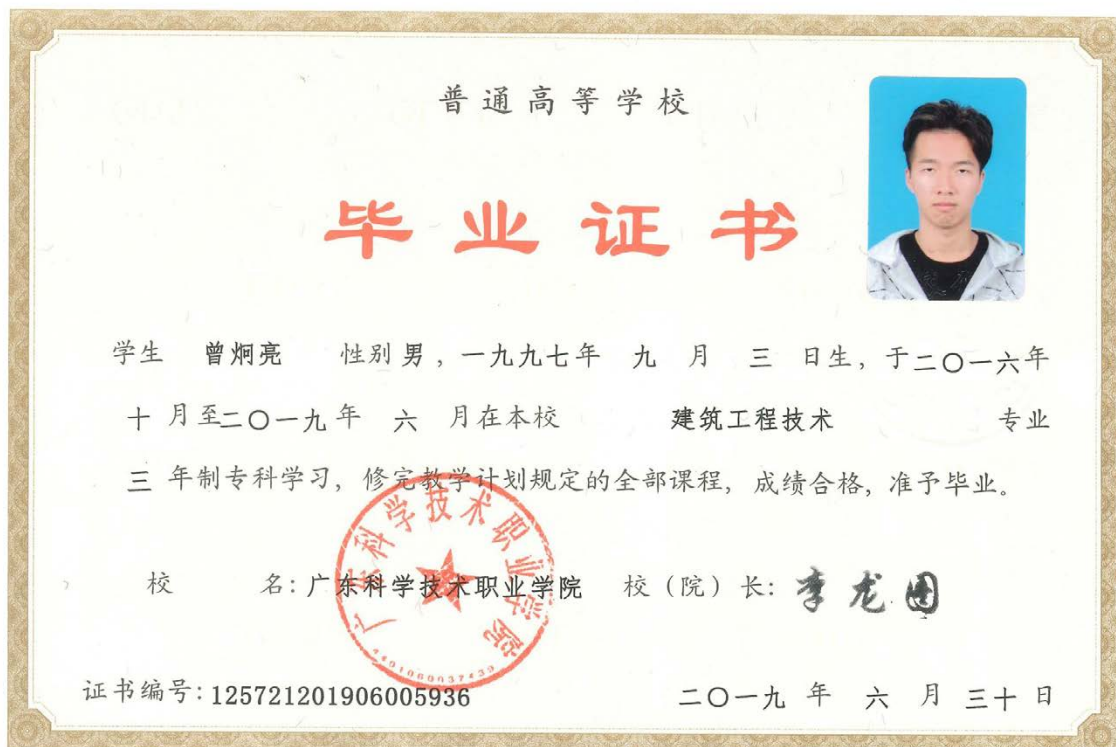 普通高等学校
毕业证书
学生 曾炯亮 性别 男，一九九七年 九 月 三 日生，于二〇一六年
十 月至二〇一九 年 六 月在本校 建筑工程技术 专业
三 年制专科学习，修完教学计划规定的全部课程，成绩合格，准予毕业。
广东科学技术职业学院
4401000037439
校 名：广东科学技术职业学院 校（院）长：李龙图
证书编号：125721201906005936 二〇一九 年 六 月 三十 日